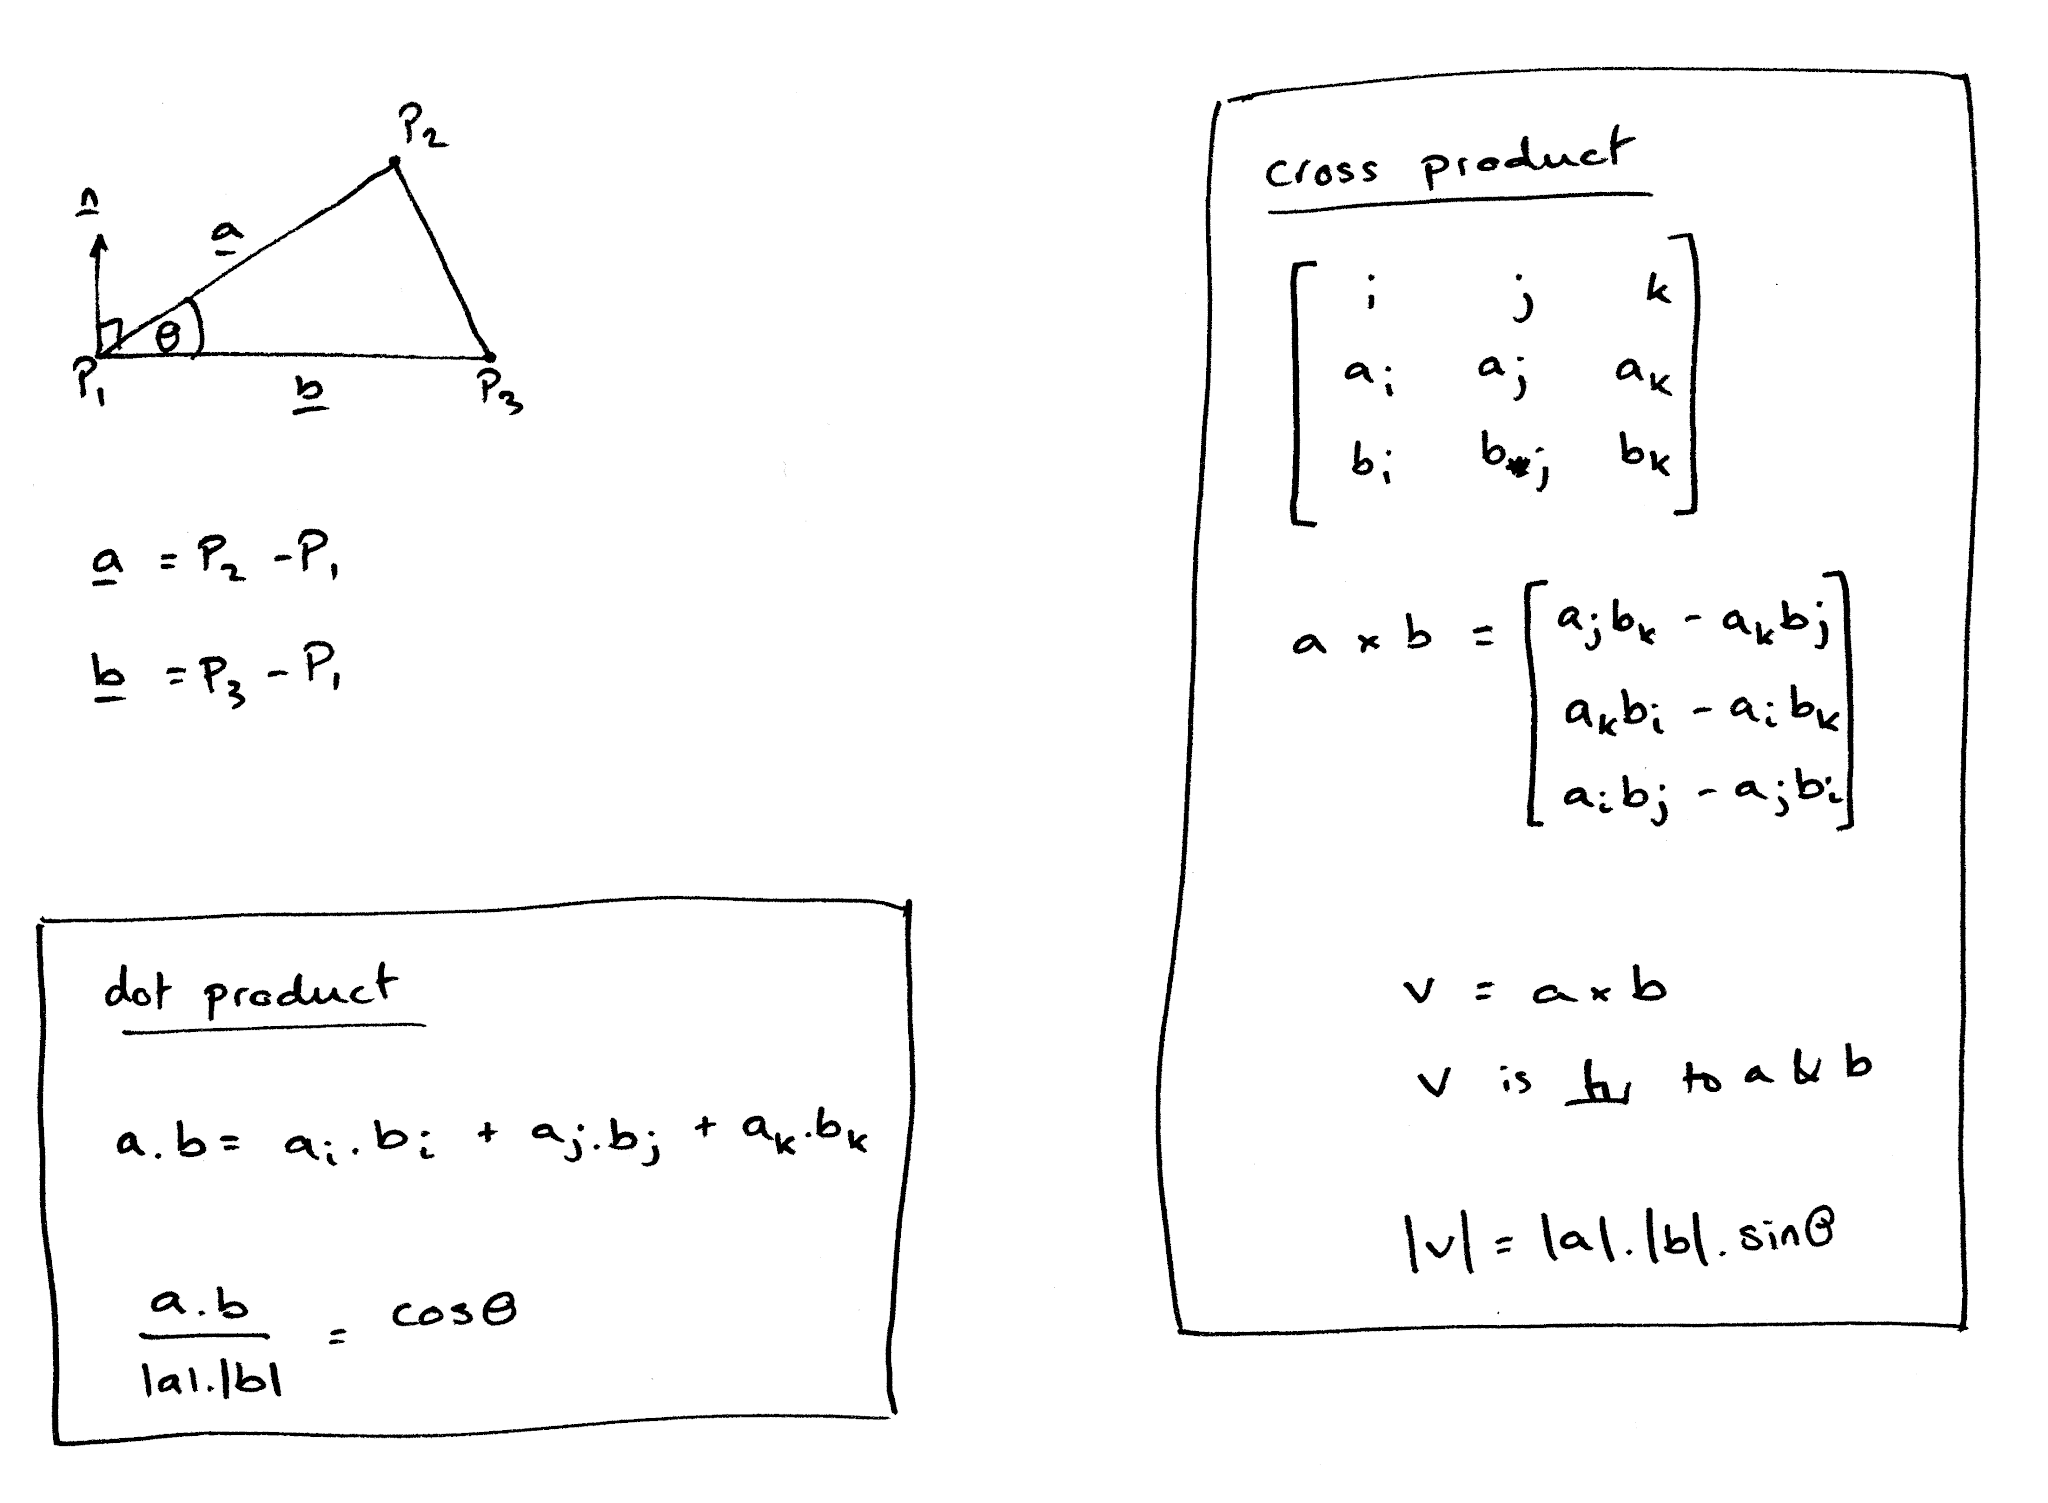 P₂
n
a
θ
P₁
b
P₃
a = P₂ - P₁
b = P₃ - P₁
dot product
a.b = aᵢ.bᵢ + aⱼ.bⱼ + aₖ.bₖ
a.b
|a|.|b|
= cosθ
cross product
i j k
aᵢ aⱼ aₖ
bᵢ bⱼ bₖ
a × b = [aⱼbₖ - aₖbⱼ
aₖbᵢ - aᵢbₖ
aᵢbⱼ - aⱼbᵢ]
v = a × b
v is ⊥ to a & b
|v| = |a|.|b|.sinθ